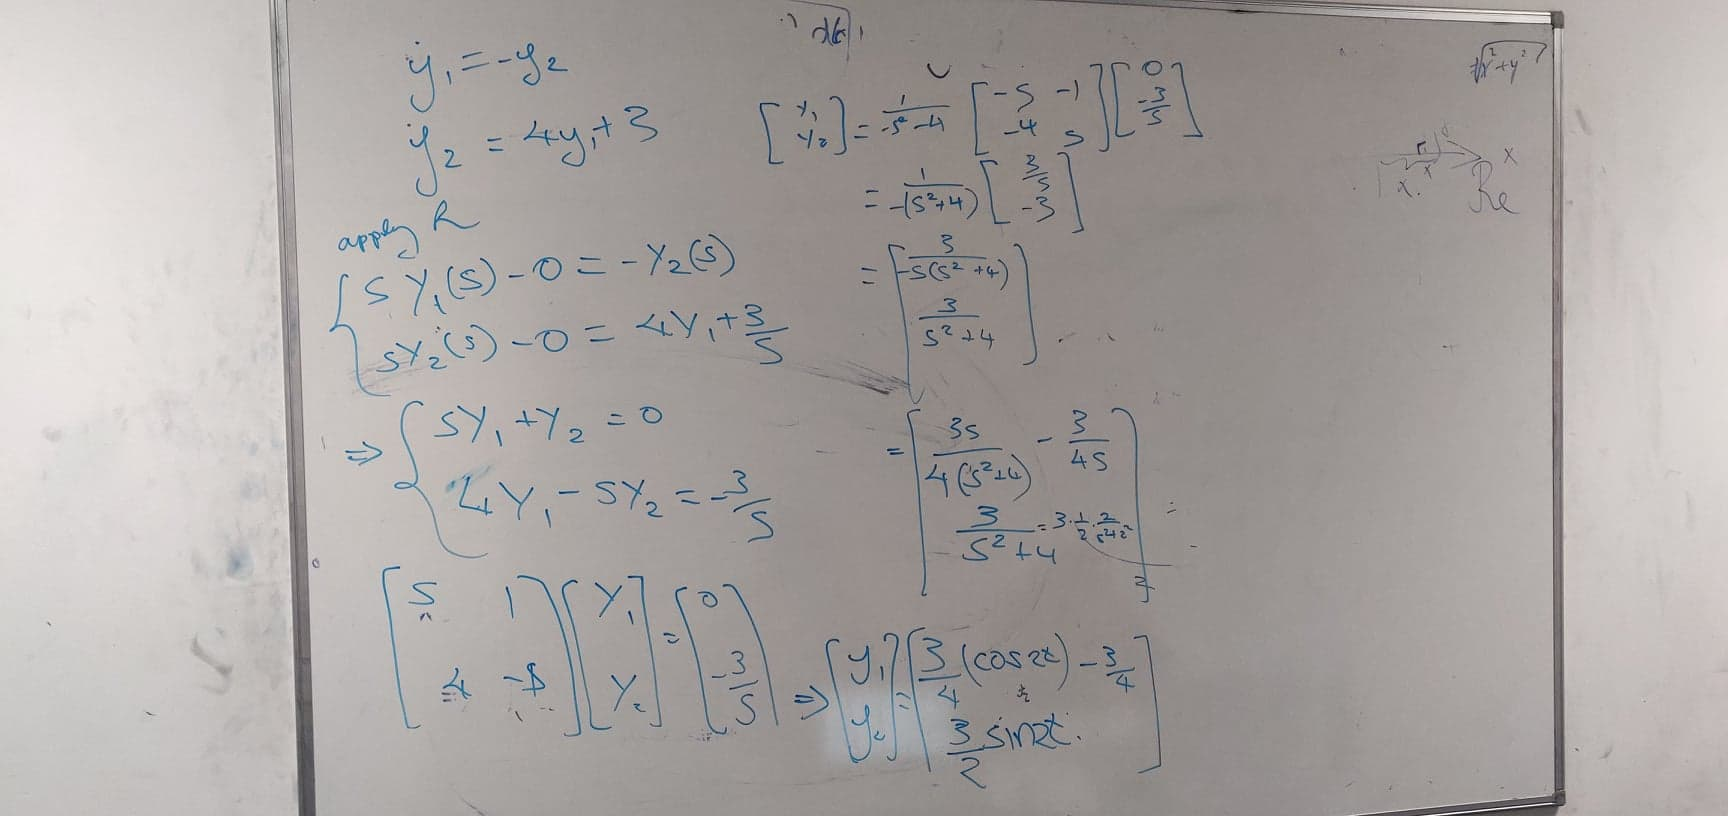 ẏ₁ = -y₂
ẏ₂ = 4y₁ + 3
apply
{ sY₁(s) - 0 = -Y₂(s)
sY₂(s) - 0 = 4Y₁ + 3/s
⇒ { sY₁ + Y₂ = 0
4Y₁ - sY₂ = -3/s
[s 1; 4 -s] [Y₁; Y₂] = [0; -3/s]
[Y₁; Y₂] = 1/(-s²-4) [-s -1; -4 s] [0; -3/s]
= 1/(-(s²+4)) [3/s; -3]
= [3/(-s(s²+4)); 3/(s²+4)]
= [3s/(4(s²+4)) - 3/(4s); 3/(s²+4) = 3·1/2·2/(s²+2²)]
⇒ [y₁; y₂] = [3/4 (cos2t) - 3/4; 3/2 sin2t.]
√x²+y²
x
Re